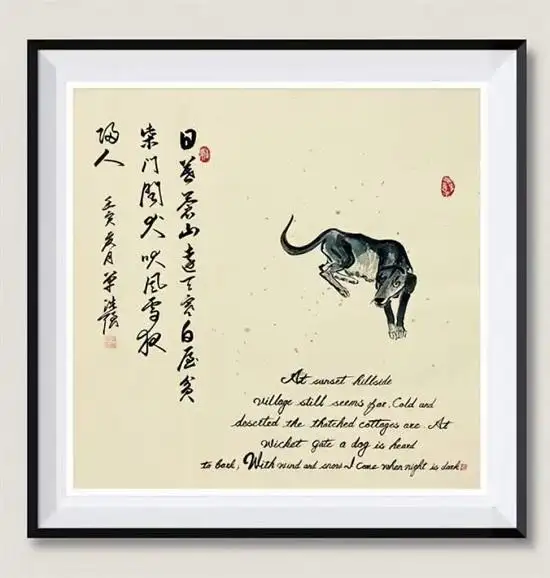 日暮蒼山遠天寒白屋貧
柴門聞犬吠風雪夜
歸人
壬寅
At sunset hillside
village still seems far. Cold and
deserted the thatched cottages are. At
Wicket gate a dog is heard
to bark, With wind and snow I come when night is dark